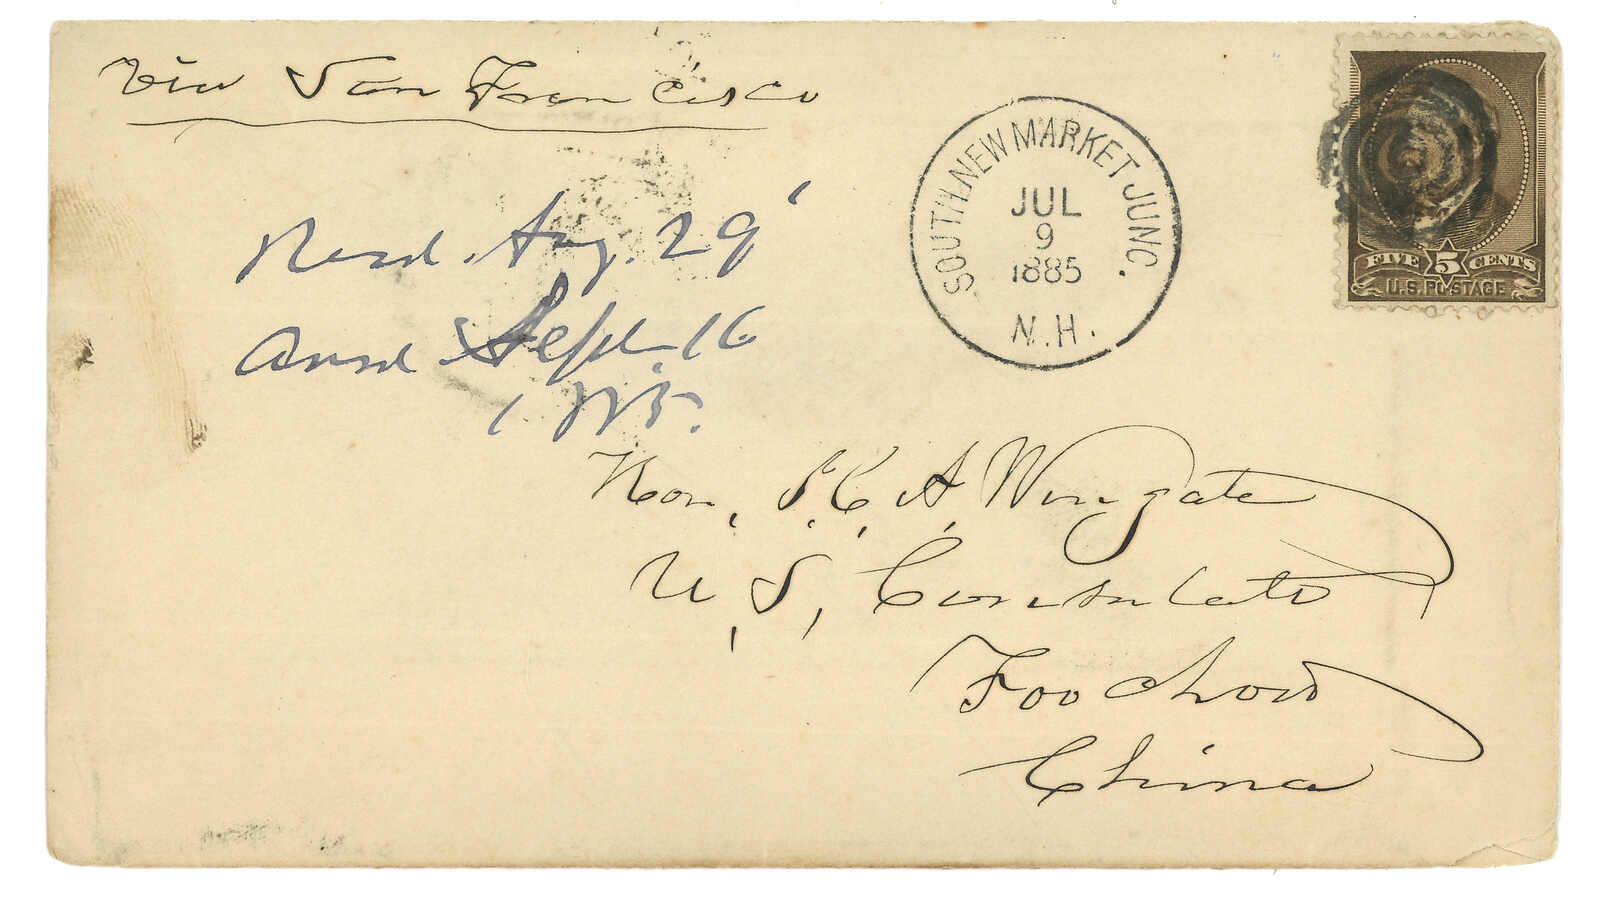 via San Francisco
SOUTH NEW MARKET JUNC.
JUL
9
1885
N.H.
FIVE 5 CENTS
U.S. POSTAGE
Recd. Aug. 29
Ansd Sept. 16
Hon, J.C.A, Wingate
U,S, Consulate
Foo Chow
China